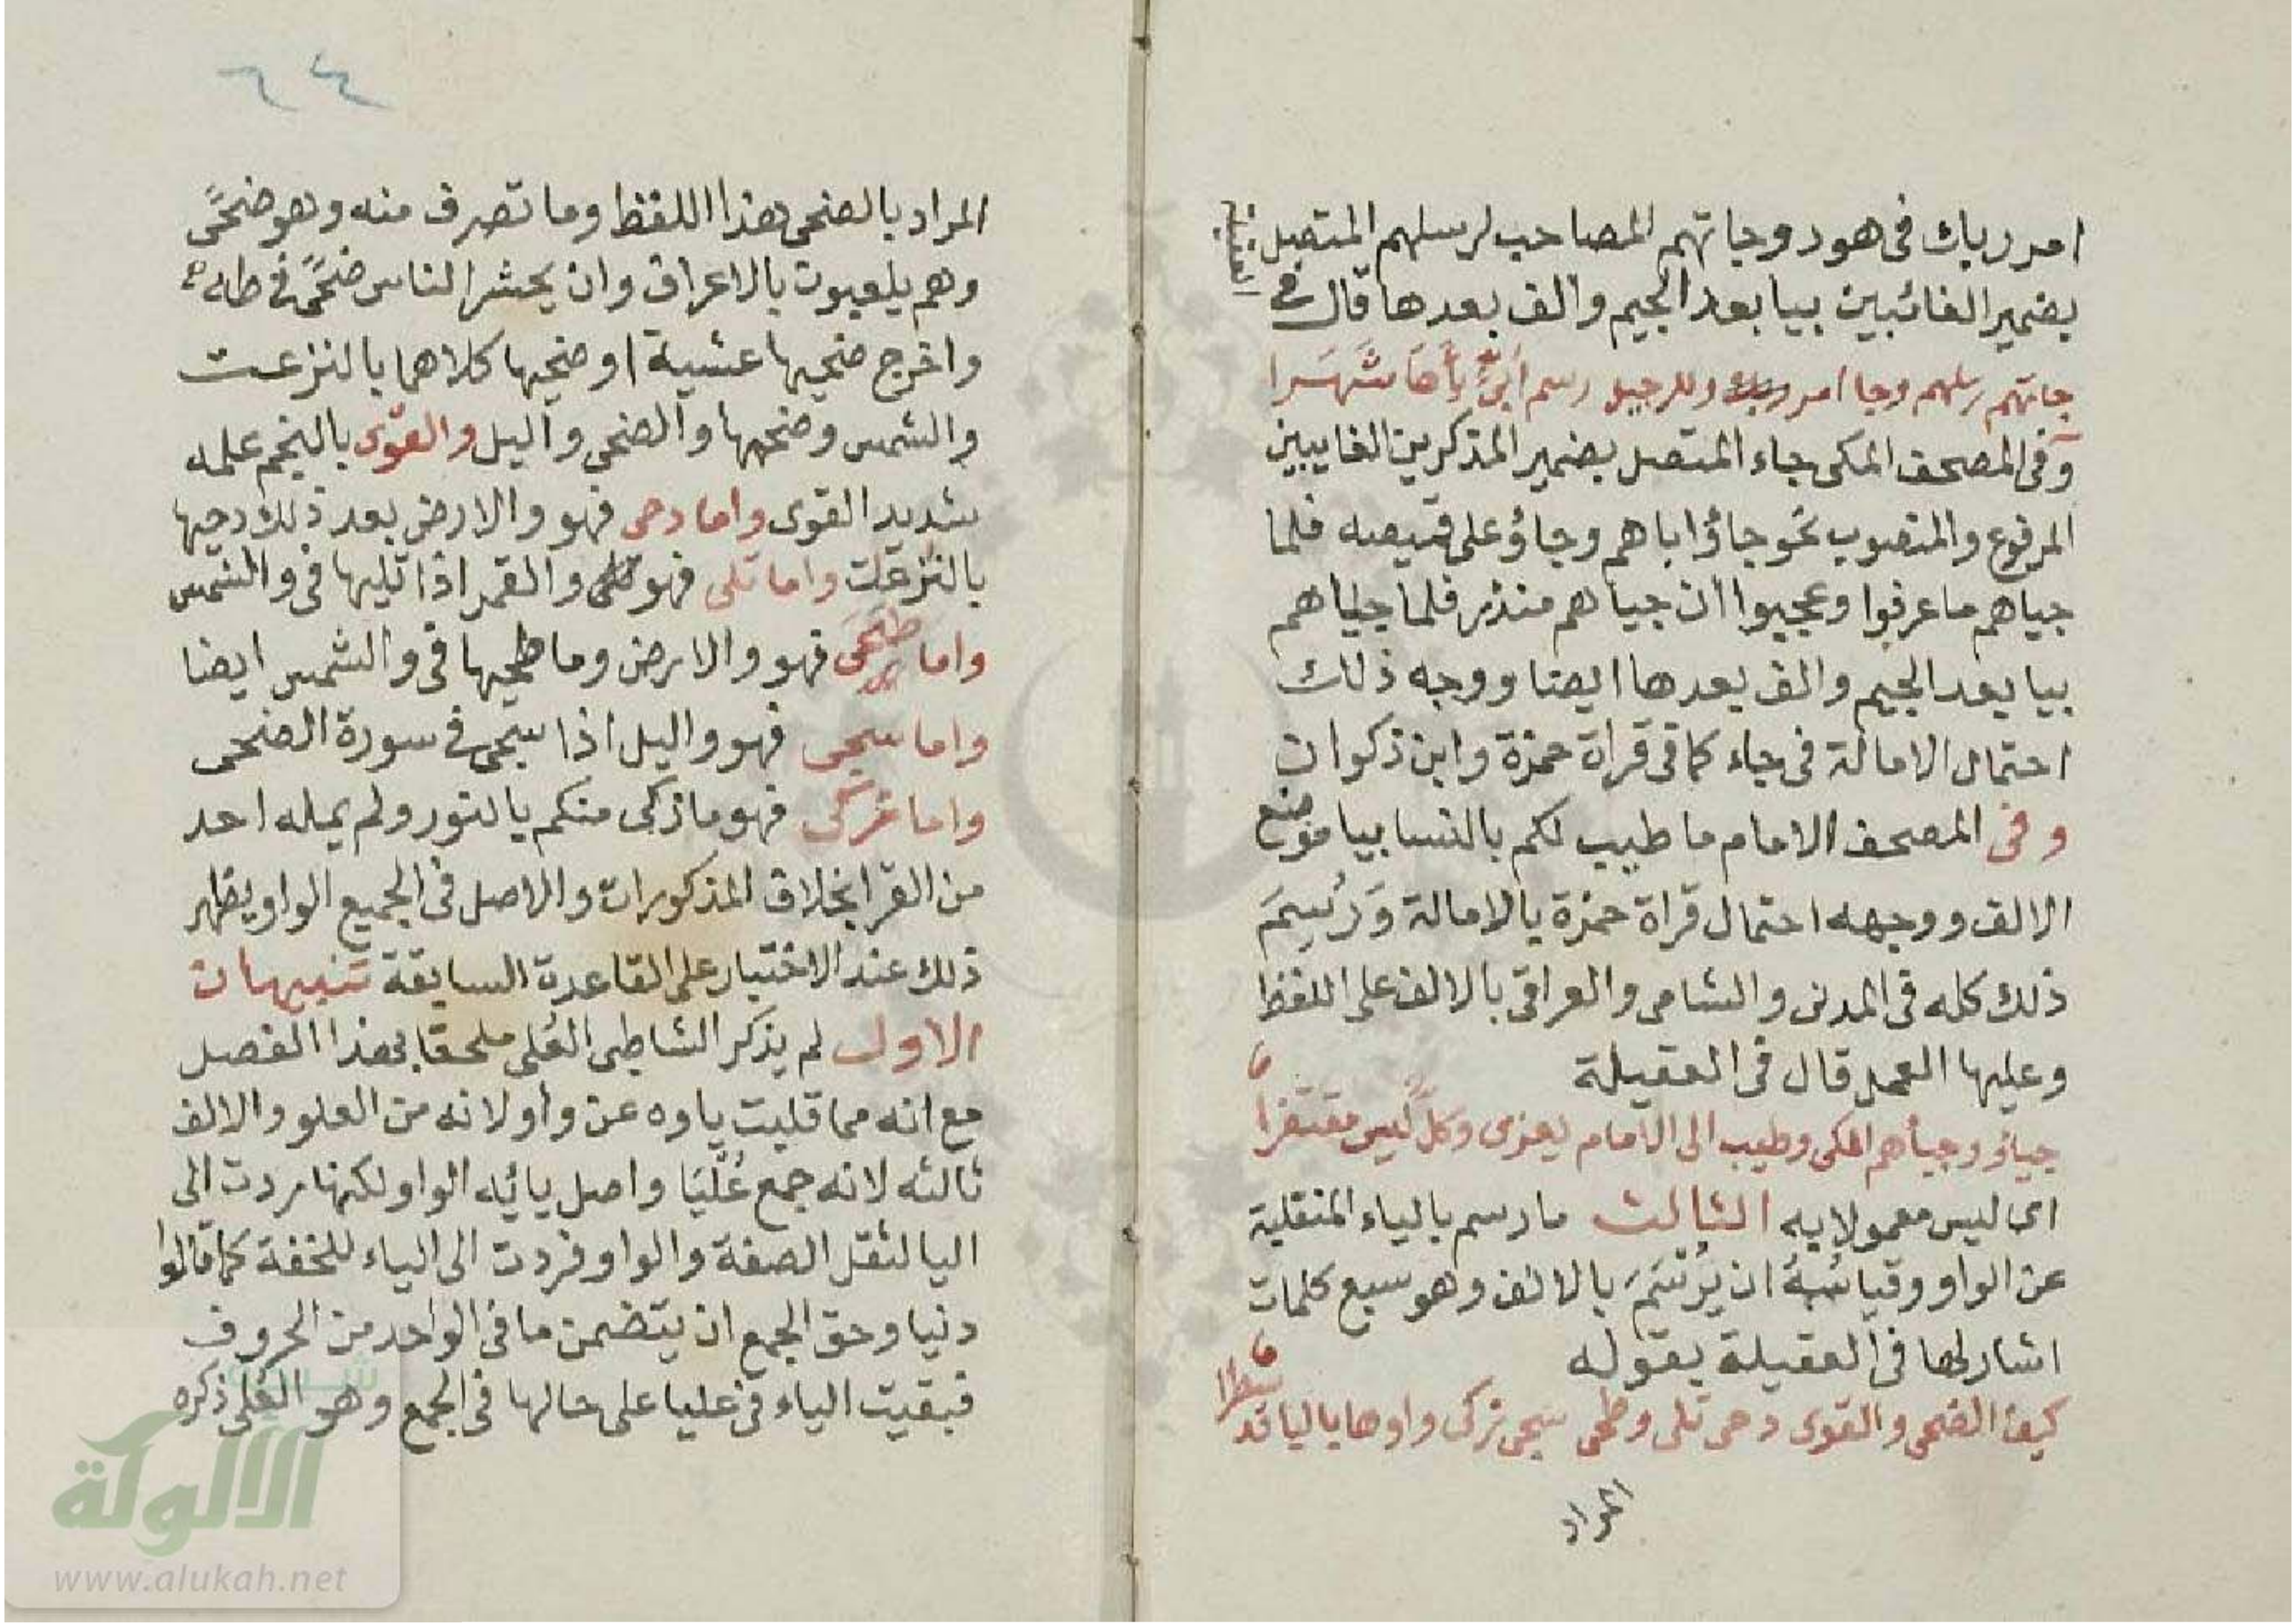 امر ربك فى هود وجاتهم المصاحب لرسلهم المتصل
بضمير الغائبين بيا بعد الجيم والف بعدها قال فى
العقيلة
جاتهم رسلهم وجا امر وللرجيل رسم ابىّ يأها شهرا
وفى المصحف المكى جاء المتصل بضمير المذكرين الغايبين
المرفوع والمنصوب نحو جاؤا اباهم وجاؤ على قميصه فلما
جياهم ما عرفوا وعجبوا ان جياهم منذر فلما جياهم
بيا بعد الجيم والف بعدها ايضا ووجه ذلك
احتمال الامالة فى جاء كما فى قراة حمزة وابن ذكوان
وفى المصحف الامام ما طيب لكم بالنسا بيا موضع
الالف ووجهه احتمال قراة حمزة بالامالة وَرُسِمَ
ذلك كله فى المدنى والشامى والعراقى بالالف على اللفظ
وعليها العمل قال فى العقيلة
جياؤ وجيأهم المكى وطيب الى الامام يعزى وكلٌّ ليس مقتفرا
اى ليس معمولا به الثالث ما رسم بالياء المنقلبة
عن الواو وقياسُهُ ان يُرْتَسَمَ بالالف وهو سبع كلمات
اشار لها فى العقيلة بقوله
كيف الضحى والقوى دحى تلى وطحى سجى زكى واوها باليا قد سطرا
المراد
٦٤
المراد بالضحى هذا اللفظ وما تصرف منه وهو ضحًى
وهم يلعبون بالاعراف وان يحشر الناس ضحًى فى طه
واخرج ضحيها عشية او ضحيها كلاهما بالنزعت
والشمس وضحيها والضحى واليل والقوى بالنجم علمه
شديد القوى واما دحى فهو والارض بعد ذلك دحيها
بالنزعت واما تلى فهو والقمر اذا تليها فى والشمس
واما طحى فهو والارض وما طحيها فى والشمس ايضا
واما سجى فهو واليل اذا سجى فى سورة الضحى
واما زكى فهو ما زكى منكم بالنور ولم يمله احد
من القرا بخلاف المذكورات والاصل فى الجميع الواو يظهر
ذلك عند الاختبار على القاعدة السابقة تنبيهات
الاول لم يذكر الشاطبى العُلى ملحقا بهذا الفصل
مع انه مما قلبت ياوه عن واو لانه من العلو والالف
ثالثه لانه جمع عُلْيَا واصل يائه الواو لكنها ردت الى
اليا لثقل الصفة والواو فردت الى الياء للخفة كما قالوا
دنيا وحق الجمع ان يتضمن ما فى الواحد من الحروف
فبقيت الياء فى عليا على حالها فى الجمع وهو العلى ذكره
الالوكة
www.alukah.net